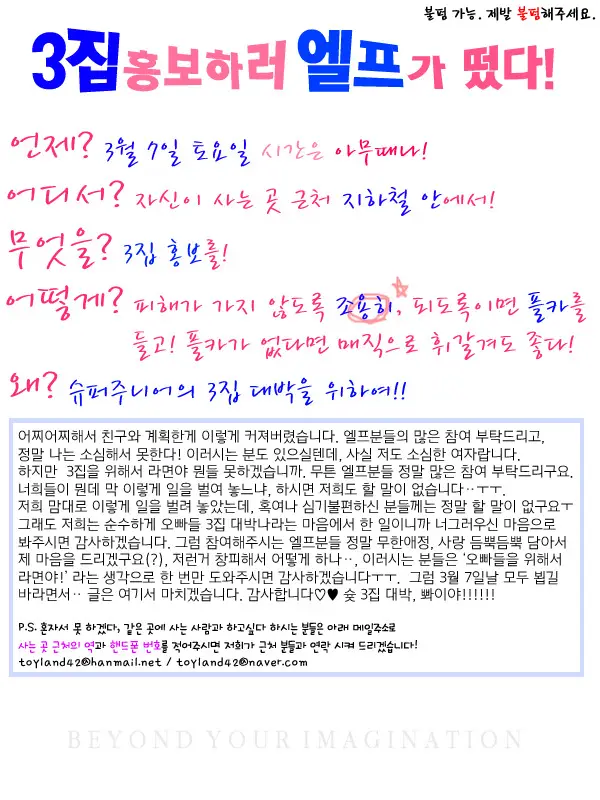 불펌 가능. 제발 불펌해주세요.
3집홍보하러 엘프가 떴다!
언제? 3월 7일 토요일 시간은 아무때나!
어디서? 자신이 사는 곳 근처 지하철 안에서!
무엇을? 3집 홍보를!
어떻게? 피해가 가지 않도록 조용히, 되도록이면 플카를
들고! 플카가 없다면 매직으로 휘갈겨도 좋다!
왜? 슈퍼주니어의 3집 대박을 위하여!!
어찌어찌해서 친구와 계획한게 이렇게 커져버렸습니다. 엘프분들의 많은 참여 부탁드리고,
정말 나는 소심해서 못한다! 이러시는 분도 있으실텐데, 사실 저도 소심한 여자랍니다.
하지만 3집을 위해서 라면야 뭔들 못하겠습니까. 무튼 엘프분들 정말 많은 참여 부탁드리구요.
너희들이 뭔데 막 이렇게 일을 벌여 놓느냐, 하시면 저희도 할 말이 없습니다··ㅜㅜ.
저희 맘대로 이렇게 일을 벌려 놓았는데, 혹여나 심기불편하신 분들께는 정말 할 말이 없구요ㅜ
그래도 저희는 순수하게 오빠들 3집 대박나라는 마음에서 한 일이니까 너그러우신 마음으로
봐주시면 감사하겠습니다. 그럼 참여해주시는 엘프분들 정말 무한애정, 사랑 듬뿍듬뿍 담아서
제 마음을 드리겠구요(?), 저런거 창피해서 어떻게 하나··, 이러시는 분들은 '오빠들을 위해서
라면야!' 라는 생각으로 한 번만 도와주시면 감사하겠습니다ㅜㅜ. 그럼 3월 7일날 모두 뵙길
바라면서·· 글은 여기서 마치겠습니다. 감사합니다♡♥ 슞 3집 대박, 빠이야!!!!!!
P.S. 혼자서 못 하겠다, 같은 곳에 사는 사람과 하고싶다 하시는 분들은 아래 메일주소로
사는 곳 근처의 역과 핸드폰 번호를 적어주시면 저희가 근처 분들과 연락 시켜 드리겠습니다!
toyland42@hanmail.net / toyland42@naver.com
BEYOND YOUR IMAGINATION